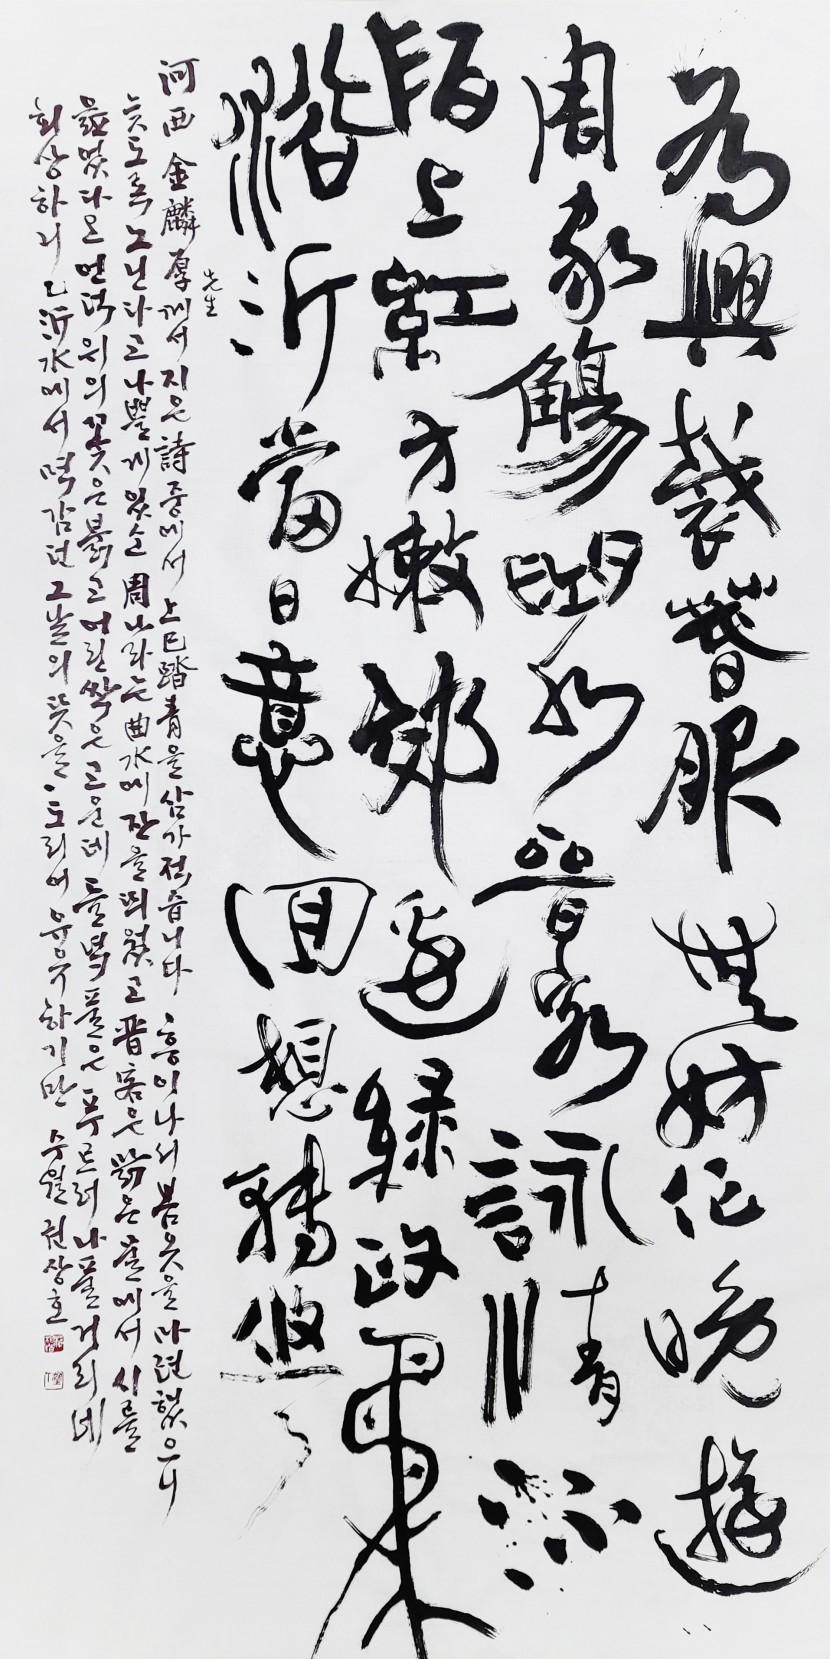 為興裁春服無妨作晚遊
周家觴曲水晉客詠清流
陌上紅方嫩郊邊綠政柔
浴沂當日意回想轉悠〻
河西金麟厚先生께서 지은 詩 중에서 上巳踏青을 삼가 적습니다 흥이 나서 봄옷을 마련했으니
늦도록 노닌다고 나쁠게 있소 周나라는 曲水에 잔을 띄웠고 晋客은 맑은 물에서 시를
읊었다오 언덕 위의 꽃은 붉고 어린 싹은 고운데 들녘 풀은 푸르러 나풀거리네
회상하리 沂水에서 멱감던 그날의 뜻을 도리어 유유하기만 수월 권장호